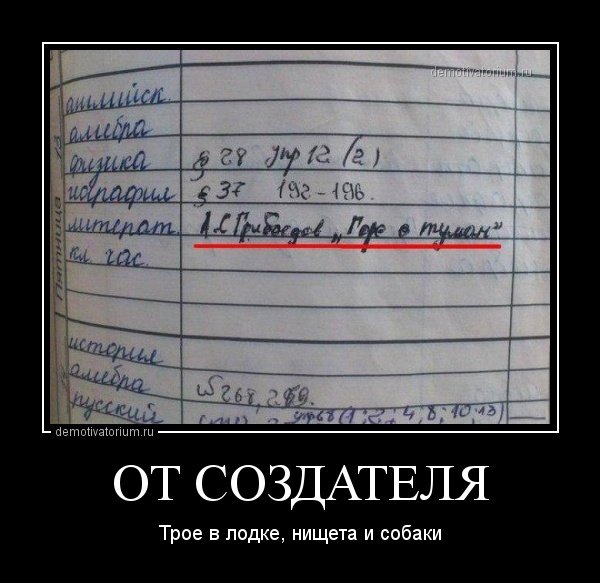 demotivatorium.ru
английск.
алгебра
физика § 28 упр 12 (2)
география § 37 192-196.
Пятница
литерат. А.С Грибоедов „Горе о туман"
кл. час.
история
алгебра № 268, 269.
русский упр68(1; 2; 4; 8; 10; 13)
demotivatorium.ru
ОТ СОЗДАТЕЛЯ
Трое в лодке, нищета и собаки